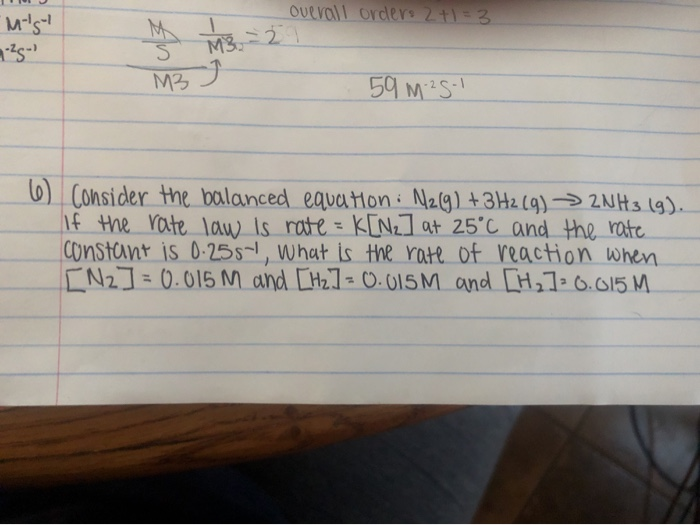 overall order: 2+1=3
M⁻¹s⁻¹
⁻²s⁻¹
M/S 1/M3 = 2
M3
59 M⁻²S⁻¹
6) Consider the balanced equation: N₂(g) + 3H₂(g) → 2NH₃(g).
If the rate law is rate = K[N₂] at 25°C and the rate
constant is 0.25s⁻¹, what is the rate of reaction when
[N₂] = 0.015M and [H₂] = 0.015M and [H₂] = 0.015M